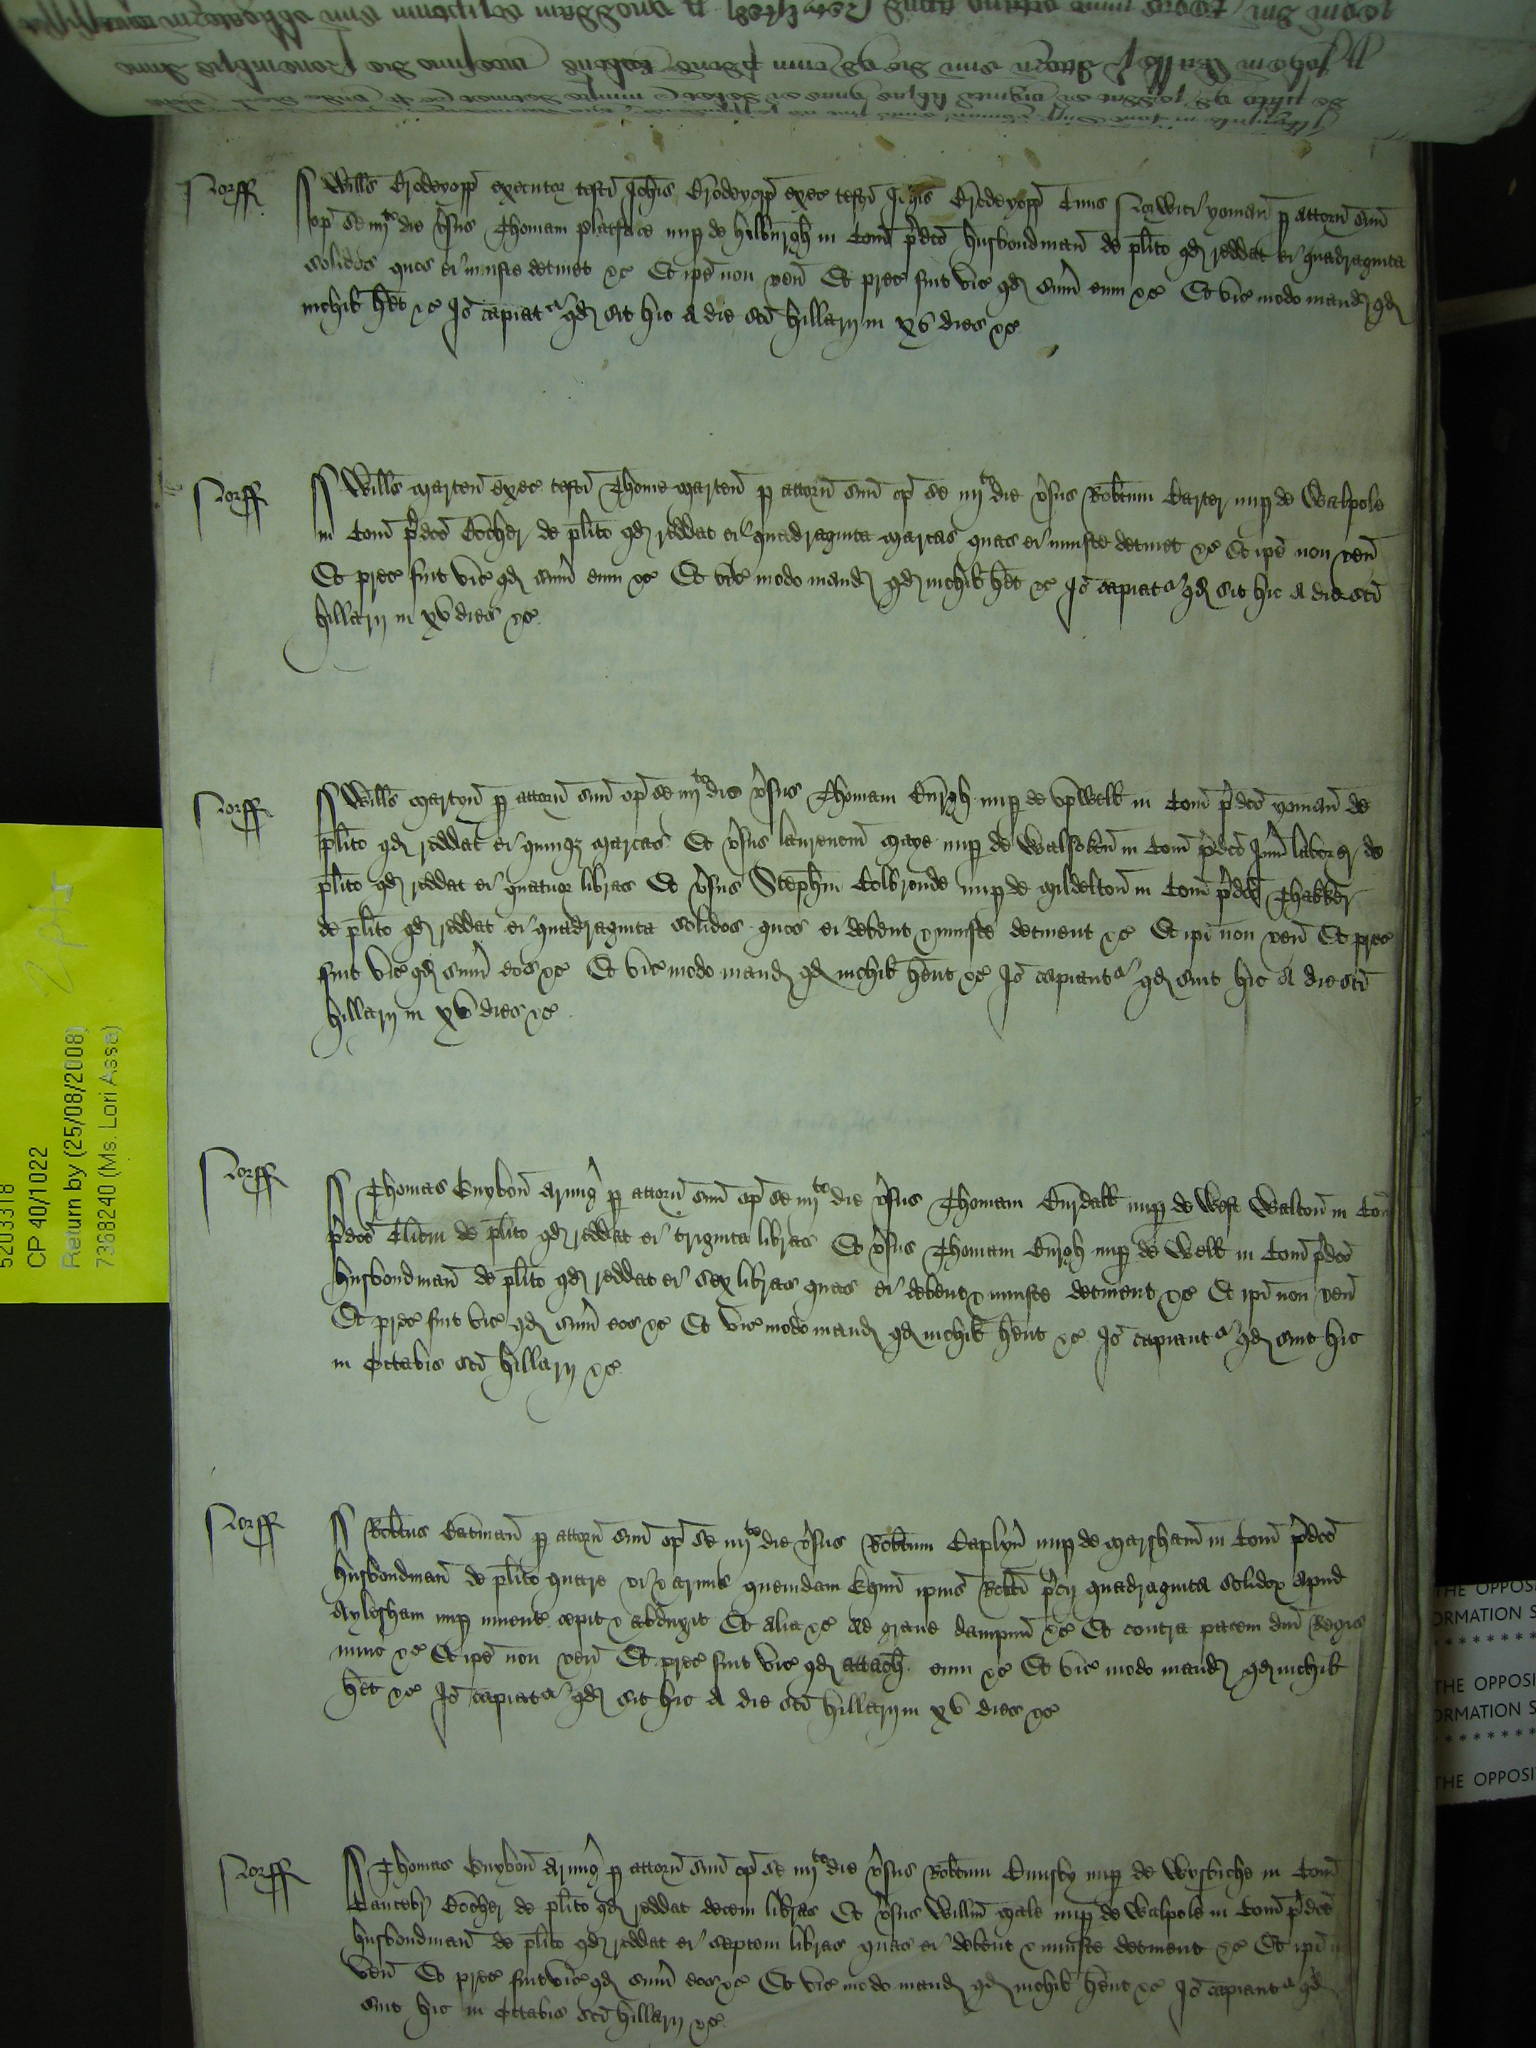 Norff
Willꝰs Brodeyopp executor testi Johis Brodeyopp exec testi Johis Brodeyopp Civis Norwici yoman p attorn suu
op se iiijto die vsus Thomam nup de hilburgh in Com pdco husbondman de plito qd reddat ei quadraginta
solidos quos ei iniuste detinet &c Et ipe non ven Et prec fuit vic qd sum eum &c Et vic modo mand qd
nichil het &c Io capiatr qd sit hic A die sci hillarij in xv dies &c
Norff
Wills Marten exec testi Thome Marten p attorn suu op se iiijto die vsus Robtum Carter nup de Walpole
in Com pdco Bocher de plito qd reddat ei quadraginta marcas quas ei iniuste detinet &c Et ipe non ven
Et prec fuit vic qd sum eum &c Et vic modo mand qd nichil het &c Io capiatr qd sit hic A die sci
hillarij in xv dies &c
Norff
Wills Martyn p attorn suu op se iiijto die vsus Thomam Burgh nup de vpwell in Com pdco yoman de
plito qd reddat ei quinqz marcas Et vsus laurencm Maye nup de Walsoken in Com pdco Juni laborer de
plito qd reddat ei quatuor libras Et vsus Stephm Colbronde nup de Mildelton in Com pdco Thakker
de plito qd reddat ei quadraginta solidos quos ei debent & iniuste detinent &c Et ipi non ven Et prec
fuit vic qd sum eos &c Et vic modo mand qd nichil hent &c Io capiantr qd sint hic A die sci
hillarij in xv dies &c
Norff
Thomas Guybon Armig p attorn suu op se iiijto die vsus Thomam Burdall nup de West Walton in Com
pdco Clicm de plito qd reddat ei triginta libras Et vsus Thomam Burgh nup de Well in Com pdco
husbondman de plito qd reddat ei sex libras quas ei debent & iniuste detinent &c Et ipi non ven
Et prec fuit vic qd sum eos &c Et vic modo mand qd nichil hent &c Io capiantr qd sint hic
in Octabis sci hillarij &c
Norff
Robtus Bateman p attorn suu op se iiijto die vsus Robtum Caplyn nup de Marsham in Com pdco
husbondman de plito quare vi & armis quemdam Equu ipius Robti pcij quadraginta solidor apud
Aylesham nup inuent cepit & abduxit Et alia &c Ad graue dampnu &c Et contra pacem dni Regis
nunc &c Et ipe non ven Et prec fuit vic qd attach eum &c Et vic modo mand qd nichil
het &c Io capiatr qd sit hic A die sci hillarij in xv dies &c
Norff
Thomas Guybon Armig p attorn suu op se iiijto die vsus Robtum nup de Wysbiche in Com
Cantebr Bocher de plito qd reddat decem libras Et vsus Willm Male nup de Walpole in Com pdco
husbondman de plito qd reddat ei septem libras quas ei debent & iniuste detinent &c Et ipi n
ven Et prec fuit vic qd sum eos &c Et vic modo mand qd nichil hent &c Io capiantr qd
sint hic in Octabis sci hillarij &c
5203318
CP 40/1022
Return by (25/08/2008)
7368240 (Ms. Lori Assa)
THE OPPOSI
ORMATION S
* * * * * * * *
THE OPPOSI
ORMATION S
* * * * * * * *
THE OPPOSI